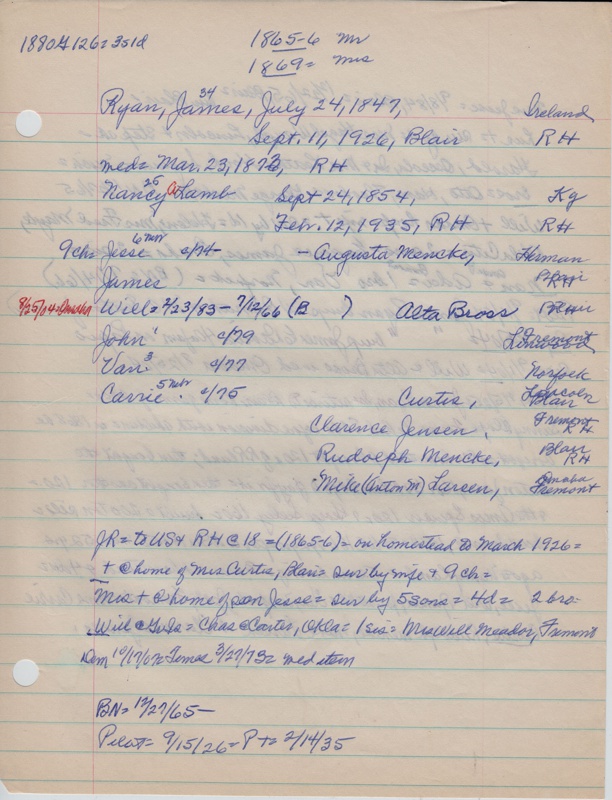 1880 # 126 = 351d
1865-6 Mr
1869 = Mrs
34
Ryan, James, July 24, 1847, Ireland
Sept. 11, 1926, Blair RH
med = Mar, 23, 1873, RH
25
Nancy A Lamb Sept 24, 1854, Ky
Febr. 12, 1935, RH RH
9ch = Jesse 6 mr c/74 - Augusta Mencke, Herman
James Blair RH
8/25/04 = Omaha Will = 7/23/83 - 7/12/66 (B ) Alta Bross Blair
John 1 c/79 Fremont
Van 3 c/77 Norfork
Carrie 5 mr c/75 Curtis, Lincoln Blair
Clarence Jensen, Fremont RH
Rudolph Mencke, Blair RH
Mike (Anton M) Larsen, Omaha Fremont
JR = to US + RH @ 18 = (1865-6) = on homestead to March 1926 =
+ @ home of Mrs Curtis, Blair = sur by wife + 9 ch =
Mrs + @ home of son Jesse = sur by 5 sons = 4d = 2 bro =
Will @ = Chas @ Coates, Okla = 1 sis = Mrs Will Meador, Fremont
Dem 10/17/02 = Times 3/27/73 = med item
BN = 12/27/65 -
Pilot = 9/15/26 = P + = 2/14/35